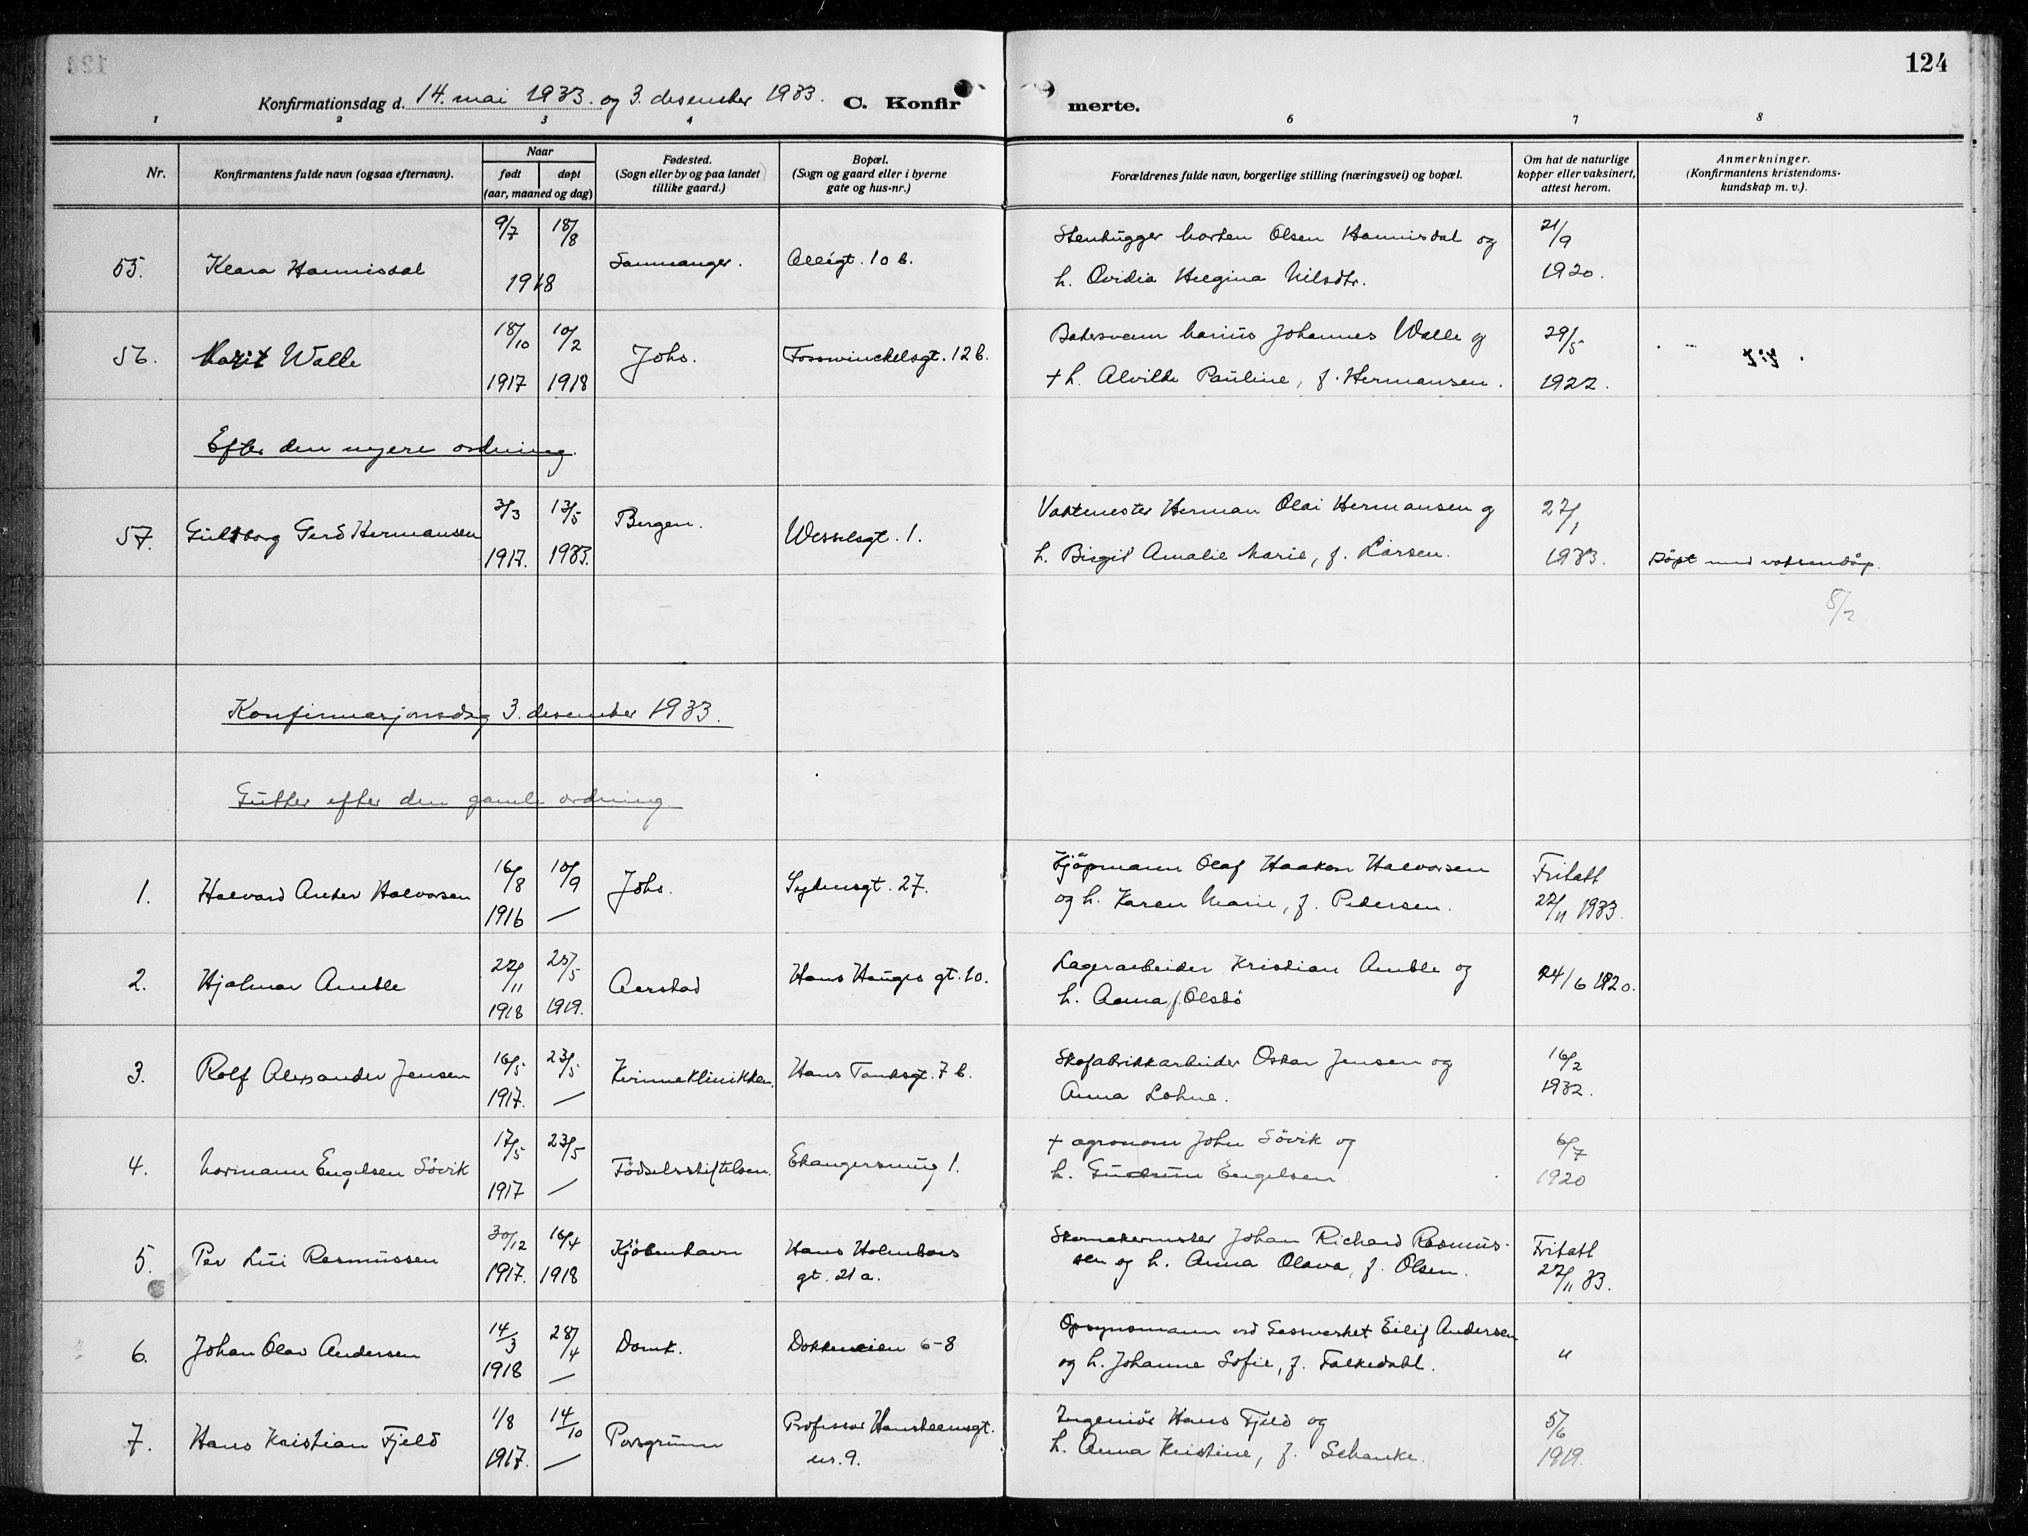 124
Konfirmationsdag d. 14. mai 1933. og 3. desember 1933. C. Konfirmerte.
1 2 3 4 6 7 8
Nr.
Konfirmantens fulde navn (ogsaa efternavn).
Naar
født døpt
(aar, maaned og dag)
Fødested.
(Sogn eller by og paa landet
tillike gaard.)
Bopæl.
(Sogn og gaard eller i byerne
gate og hus-nr.)
Forældrenes fulde navn, borgerlige stilling (næringsvei) og bopæl.
Om hat de naturlige
kopper eller vaksinert,
attest herom.
Anmerkninger.
(Konfirmantens kristendoms-
kundskap m. v.).
9/7 18/8 Stenhugger Morten Olsen Hannisdal og 21/9
55. Klara Hannisdal 1918 Samnanger. Allégt. 10 b. h. Ovidia Helgina Nilsdtr. 1920.
18/10 10/2 Bakersvenn Marius Johannes Walle og 29/5
56. Marit Walle Johs. Fosswinckelsgt. 12 b.
1917 1918 + h. Alvilde Pauline, f. Hermansen. 1922.
Efter den nyere ordning.
3/3 13/5 Vaktmester Herman Olai Hermansen og 27/1
57. Guldborg Gerd Hermansen Bergen. Wesselsgt. 1.
1917. 1933. h. Birgit Amalie Marie, f. Larsen. 1933. Døpt med voksendåp.
Konfirmasjonsdag 3. desember 1933.
Gutter efter den gamle ordning
16/8 10/9 Kjöpmann Olaf Haakon Halvorsen Fritatt
1. Halvard Anker Halvorsen Johs. Sydnesgt. 27.
1916 — og h. Karen Marie, f. Pedersen. 22/11 1933.
22/11 25/5 Lagerarbeider Kristian Amble og
2. Hjalmar Amble Aarstad Hans Hauges gt. 10. 24/6 1920.
1918 1919. h. Anna f. Olsbö
16/5 23/5 Skofabrikkarbeider Oskar Jensen og 16/2
3. Rolf Alexander Jensen Kvinneklinikken. Hans Tanksgt. 7 b.
1917. — Anna Lohne. 1932.
17/5 23/5 + agronom John Sövik og 6/7
4. Normann Engelsen Sövik Födselsstiftelsen. Ekangersmug 1.
1917 — h. Gudrun Engelsen 1920
30/12 16/4 Skomakermester Johan Richard Rasmus-
5. Per Lui Rasmussen Kjöbenhavn Hans Holmboes Fritatt
1917. 1918 gt. 21 a. sen og h. Anna Olava, f. Olsen. 22/11 33.
14/3 28/4 Opsynsmann ved Gassverket Eilif Andersen
6. Johan Olav Andersen Domk. Dokkeveien 6-8 "
1918 — og h. Johanne Sofie, f. Falkedahl.
1/8 14/10 Professor Hansteensgt. Ingeniör Hans Fjeld og 5/6
7. Hans Kristian Fjeld Porsgrunn
1917. — nr. 9. h. Anna Kristine, f. Schanke. 1919.